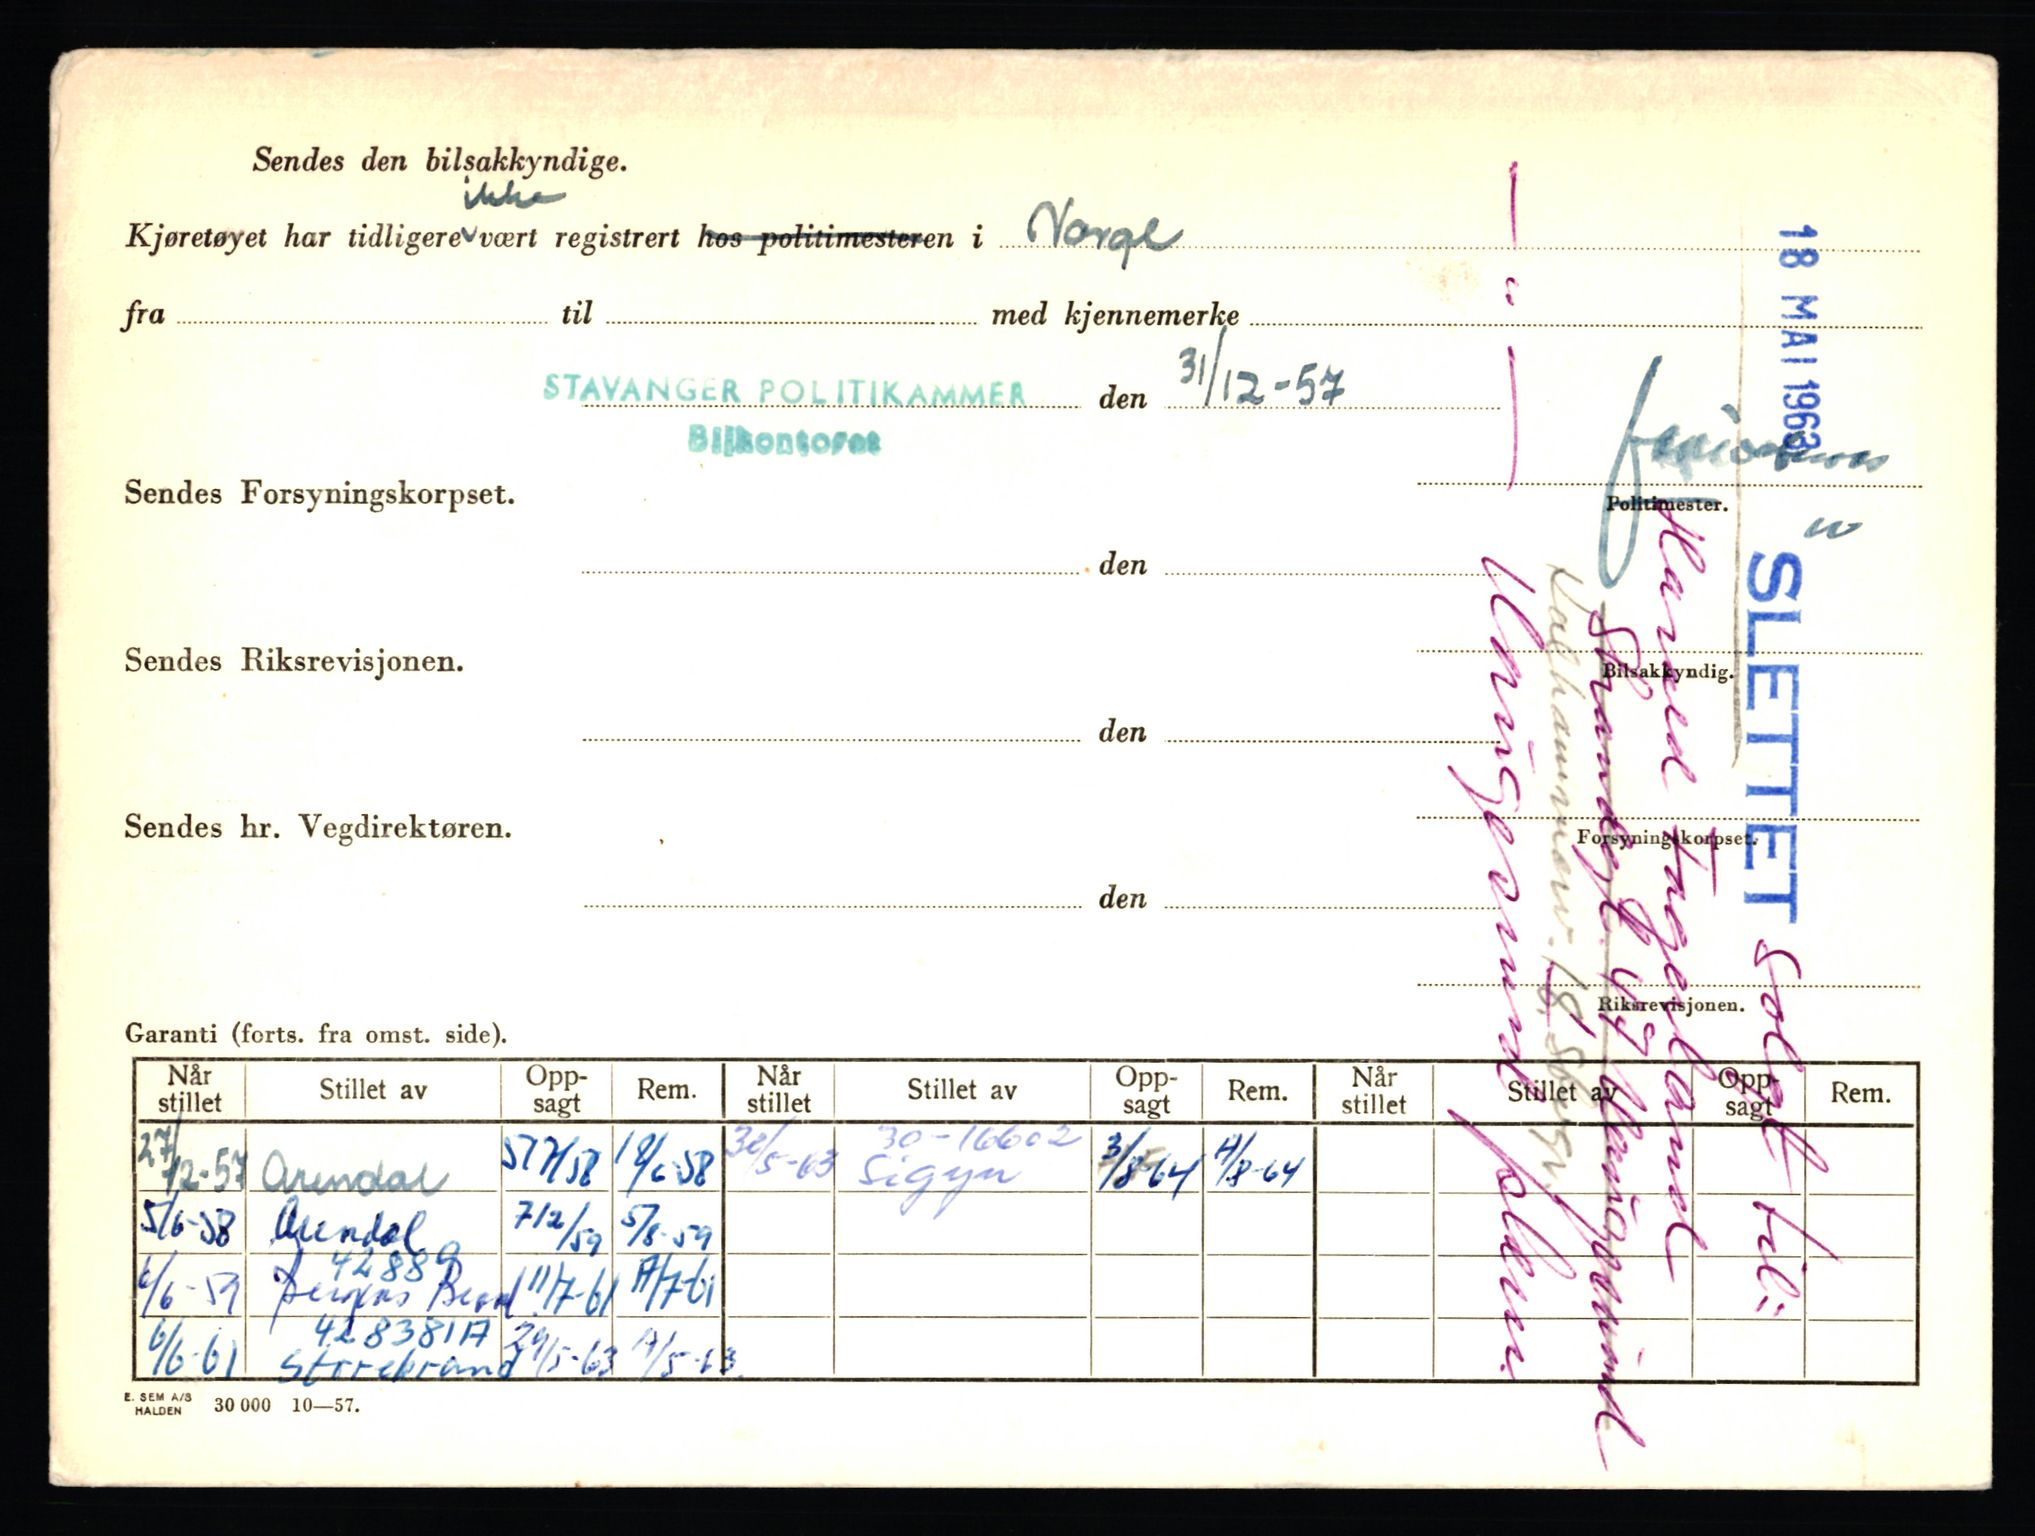 Sendes den bilsakkyndige.
ikke
Kjøretøyet har tidligere vært registrert hos politimesteren i Norge
fra til med kjennemerke
STAVANGER POLITIKAMMER den 31/12-57
Bilkontoret
Sendes Forsyningskorpset.
Politimester.
den
Sendes Riksrevisjonen.
Bilsakkyndig.
den
Sendes hr. Vegdirektøren.
Forsyningskorpset.
den
Riksrevisjonen.
18 MAI 1963
SLETTET Solgt til:
Harald Fageland
Strandgt. 47 Haugesund
18.
Haugesund politim.
Garanti (forts. fra omst. side).
Når stillet Stillet av Opp-sagt Rem. Når stillet Stillet av Opp-sagt Rem. Når stillet Stillet av Opp-sagt Rem.
27/12-57 Arendal 5/7/58 18/6-58 30/5-63 30-16602 Sigyn 3/8-64 4/8-64
5/6-58 Arendal 7/2/59 5/8-59
6/6-59 42889 Bergens Brand 11/7-61 17/7-61
6/6-61 428381A Storebrand 29/5-63
E. SEM A/S
HALDEN 30 000 10—57.